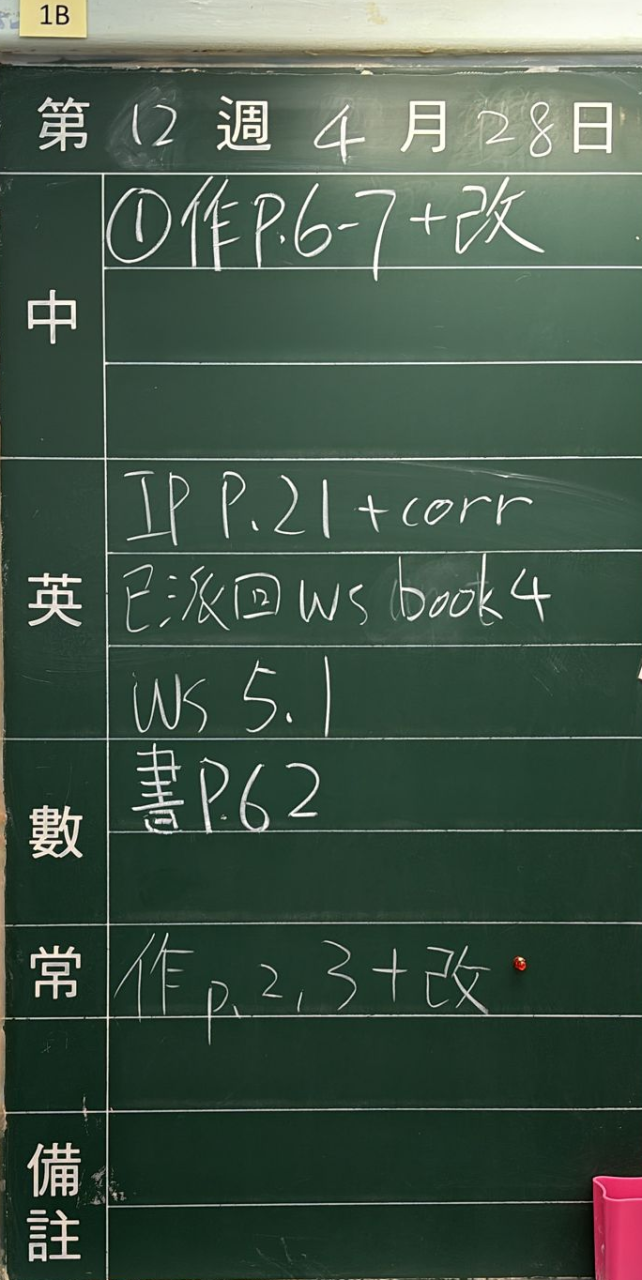 1B
第 12 週 4 月 28 日
中
①作P.6-7+改
英
IP P.21 +corr
已派回 WS book 4
WS 5.1
數
書P.62
常
作p.2,3+改
備註